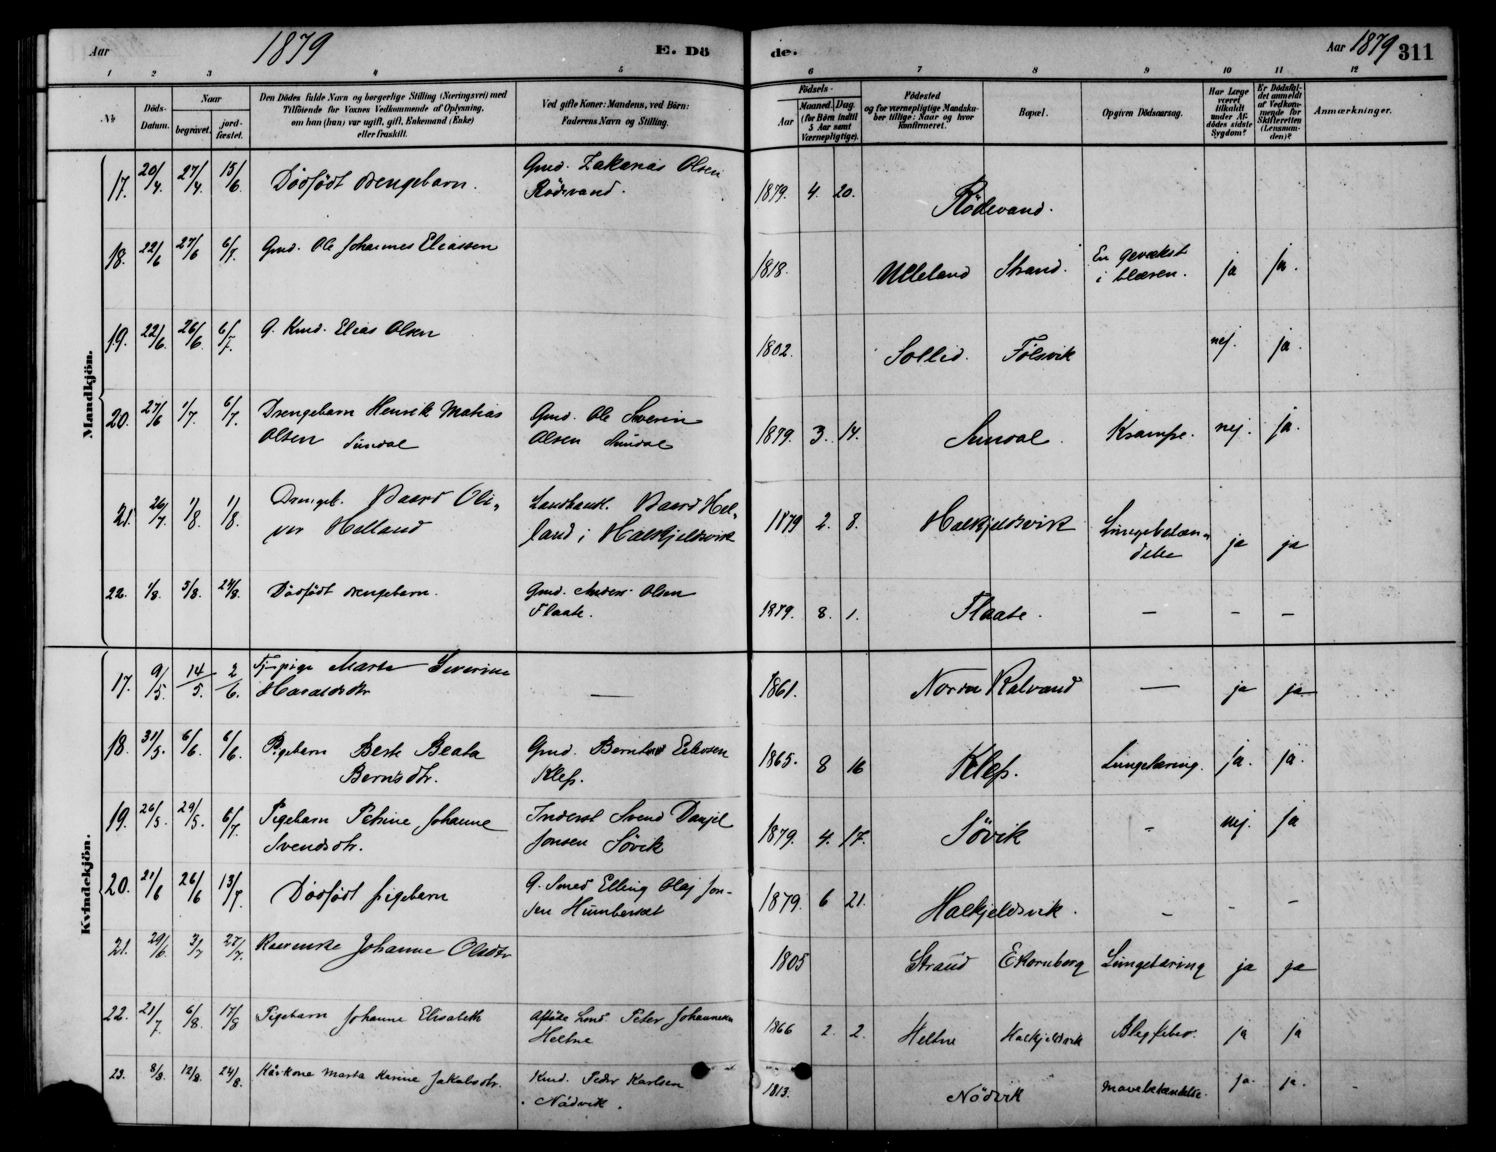 Aar 1879 E. Dö de. Aar 1879 311
1 2 3 4 5 6 7 8 9 10 11 12
№ Döds-Datum. Naar begravet. jordfæstet. Den Dödes fulde Navn og borgerlige Stilling (Næringsvei) med Tilföiende for Voxnes Vedkommende af Oplysning, om han (hun) var ugift, gift, Enkemand (Enke) eller fraskilt. Ved gifte Koner: Mandens, ved Börn: Faderens Navn og Stilling. Födsels- Aar Maaned. Dag. (for Börn indtil 5 Aar samt Værnepligtige). Födested og for værnepligtige Mandskaber tillige: Naar og hvor konfirmeret. Bopæl. Opgiven Dödsaarsag. Har Læge været tilkaldt under Afdödes sidste Sygdom? Er Dödsfaldet anmeldt af Vedkommende for Skifteretten (Lensmanden)? Anmærkninger.
Mandkjön.
17. 20/4. 27/4. 15/6. Dödfödt drengebarn. Gmd. Zakarias Olsen Rödsvand. 1879. 4. 20. Rödevand.
18. 22/6 27/6 6/7. Gmd. Ole Johannes Eliassen 1818. Ulleland Strand. En Gevækst i blæren. ja ja.
19. 22/6. 26/6. 6/7. G. Kmd. Elias Olsen 1802. Sollid. Fölsvik nej. ja.
20. 27/6 1/7. 6/7. Drengebarn Henrik Matias Olsen Sundal Gmd. Ole Severin Olsen Sundal 1879. 3. 14. Sundal. Krampe. nej. ja.
21. 26/7. 1/8. 1/8. Drengeb. Baard Oliver Helland Landhandl. Baard Helland i Halkjeldsvik 1879 2. 8. Halkjeldsvik Lungebetændelse ja ja
22. 1/8. 3/8. 24/8. Dödfödt drengebarn. Gmd. Anders Olsen Flaate. 1879. 8. 1. Flaate. — — —
Kvindekjön.
17. 9/5. 14/5. 2/6. pige Marte Severine Haraldsdtr — 1861. Kalvand — ja ja
18. 31/5. 6/6. 6/6. Pigebarn Berte Beata Bernsdtr. Gmd. Berntsd Eelevsen Klep. 1865. 8 16 Klep. Lungetæring. ja. ja.
19. 26/5. 29/5. 6/7. Pigebarn Petrine Johanne Svendsdtr. Inderst Svend Danjel Jonsen Søvik 1879. 4. 17. Søvik - nej. ja
20. 21/6 26/6 13/7. Dödfödt pigebarn G. Smed Elling Olaj Jonsen Humberset 1879. 6 21. Halkjeldsvik. - - -
21. 29/6. 3/7 27/7. Johanne Olsdtr 1805 Strand Ekornborg Lungetæring ja ja
22. 21/7 6/8. 17/8 Pigebarn Johanne Elisabeth Peter Johannesen Heltne 1866 2. 2. Heltne Halkjeldsvik ja ja
23. 8/8. 12/8. 24/8. Kårkone Marta Karine Jakobsdtr. Kmd. Peder Karlsen Nödvik. 1813. Nödvik Mavebetændelse. ja. ja.